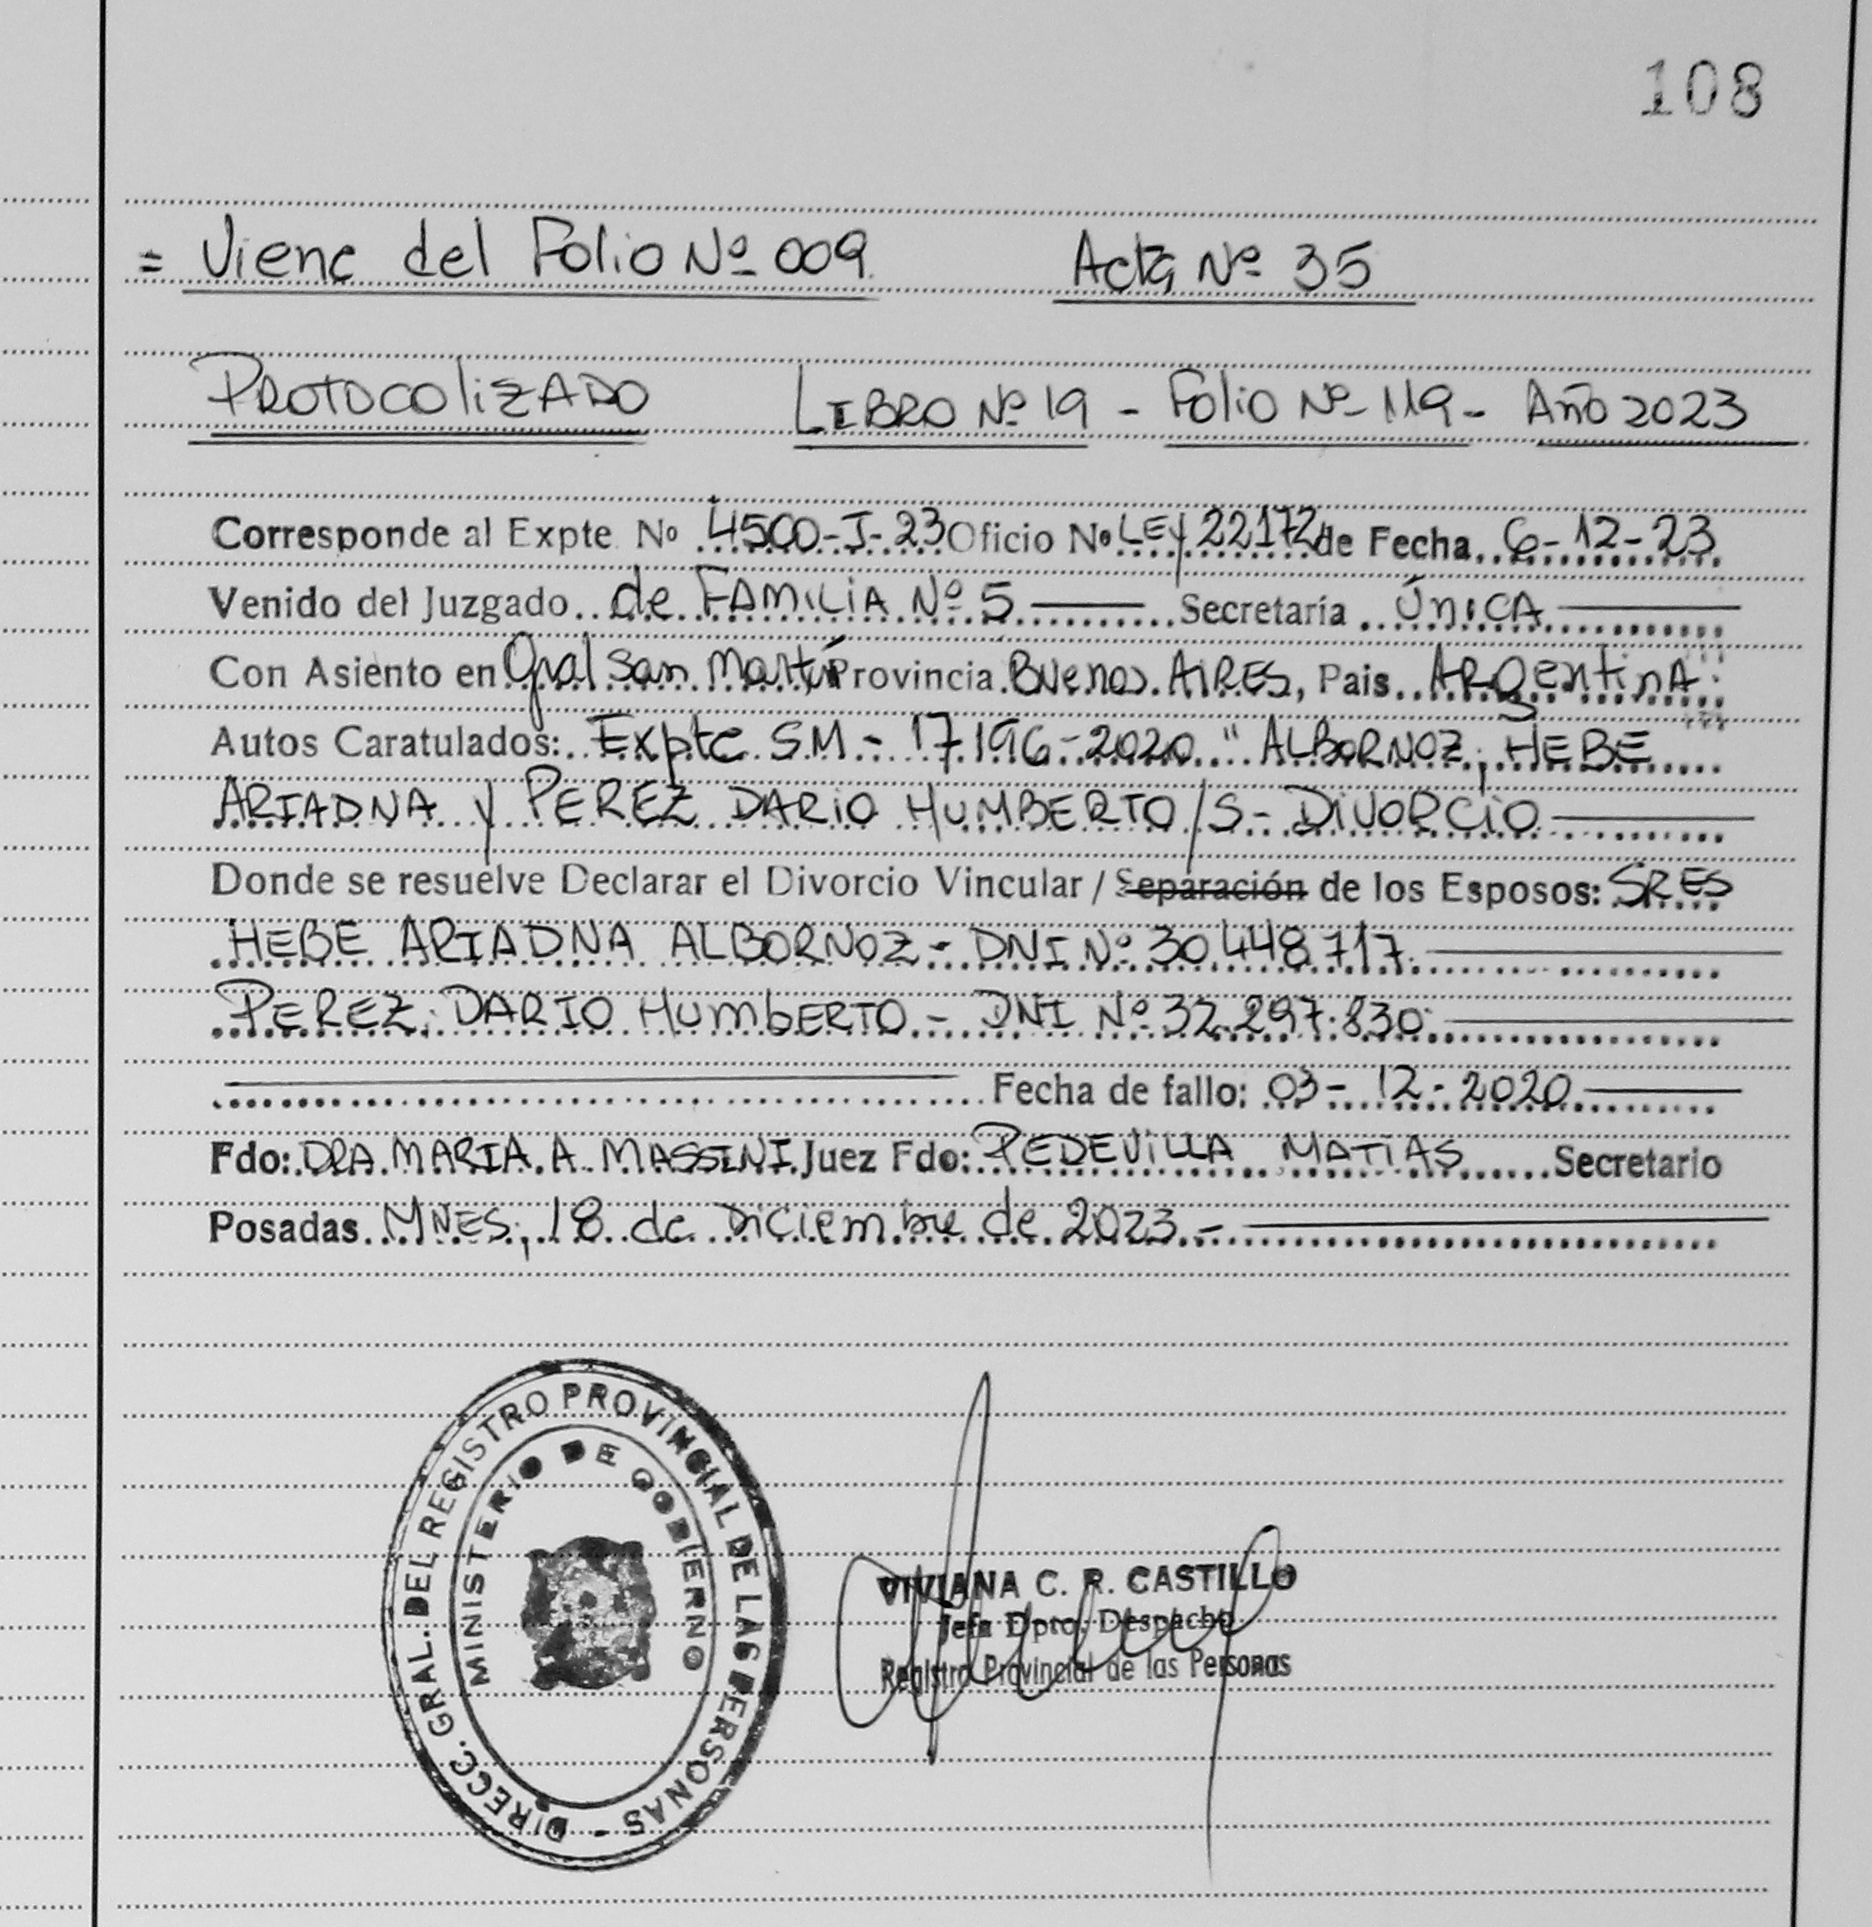 108
= Viene del Folio Nº 009. Acta Nº 35
PROTOCOLIZADO LIBRO Nº 19 - Folio Nº 119 - Año 2023
Corresponde al Expte. Nº 4500-J-23 Oficio Nº LEY 22172 de Fecha 6-12-23
Venido del Juzgado de FAMILIA Nº 5 Secretaría ÚNICA
Con Asiento en Gral San Martín Provincia Buenos AIRES, Pais ARgentinA
Autos Caratulados: Expte SM - 17196-2020 " ALBORNOZ, HEBE
ARIADNA y PEREZ DARIO HUMBERTO /S- DIVORCIO
Donde se resuelve Declarar el Divorcio Vincular / Separación de los Esposos: SRES
HEBE ARIADNA ALBORNOZ - DNI Nº 30.448.717.
PEREZ, DARIO HUMBERTO - DNI Nº 32.297.830.
Fecha de fallo: 03-12-2020
Fdo: DRA. MARIA A. MASSINI Juez Fdo: PEDEVILLA MATIAS Secretario
Posadas MNES, 18 de Diciembre de 2023.-
DIRECC. GRAL. DEL REGISTRO PROVINCIAL DE LAS PERSONAS -
MINISTERIO DE GOBIERNO
VIVIANA C. R. CASTILLO
Jefa Dpto. Despacho
Registro Provincial de las Personas